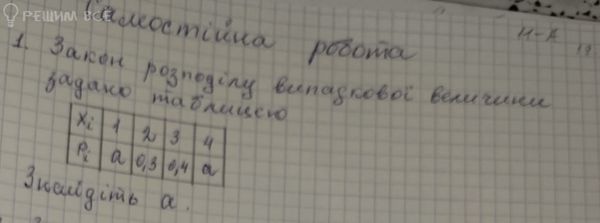 РЕШИМ ВСЕ
Самостійна робота
1. Закон розподілу випадкової величини
задано таблицею
Xi 1 2 3 4
Pi a 0,3 0,4 a
Знайдіть a.